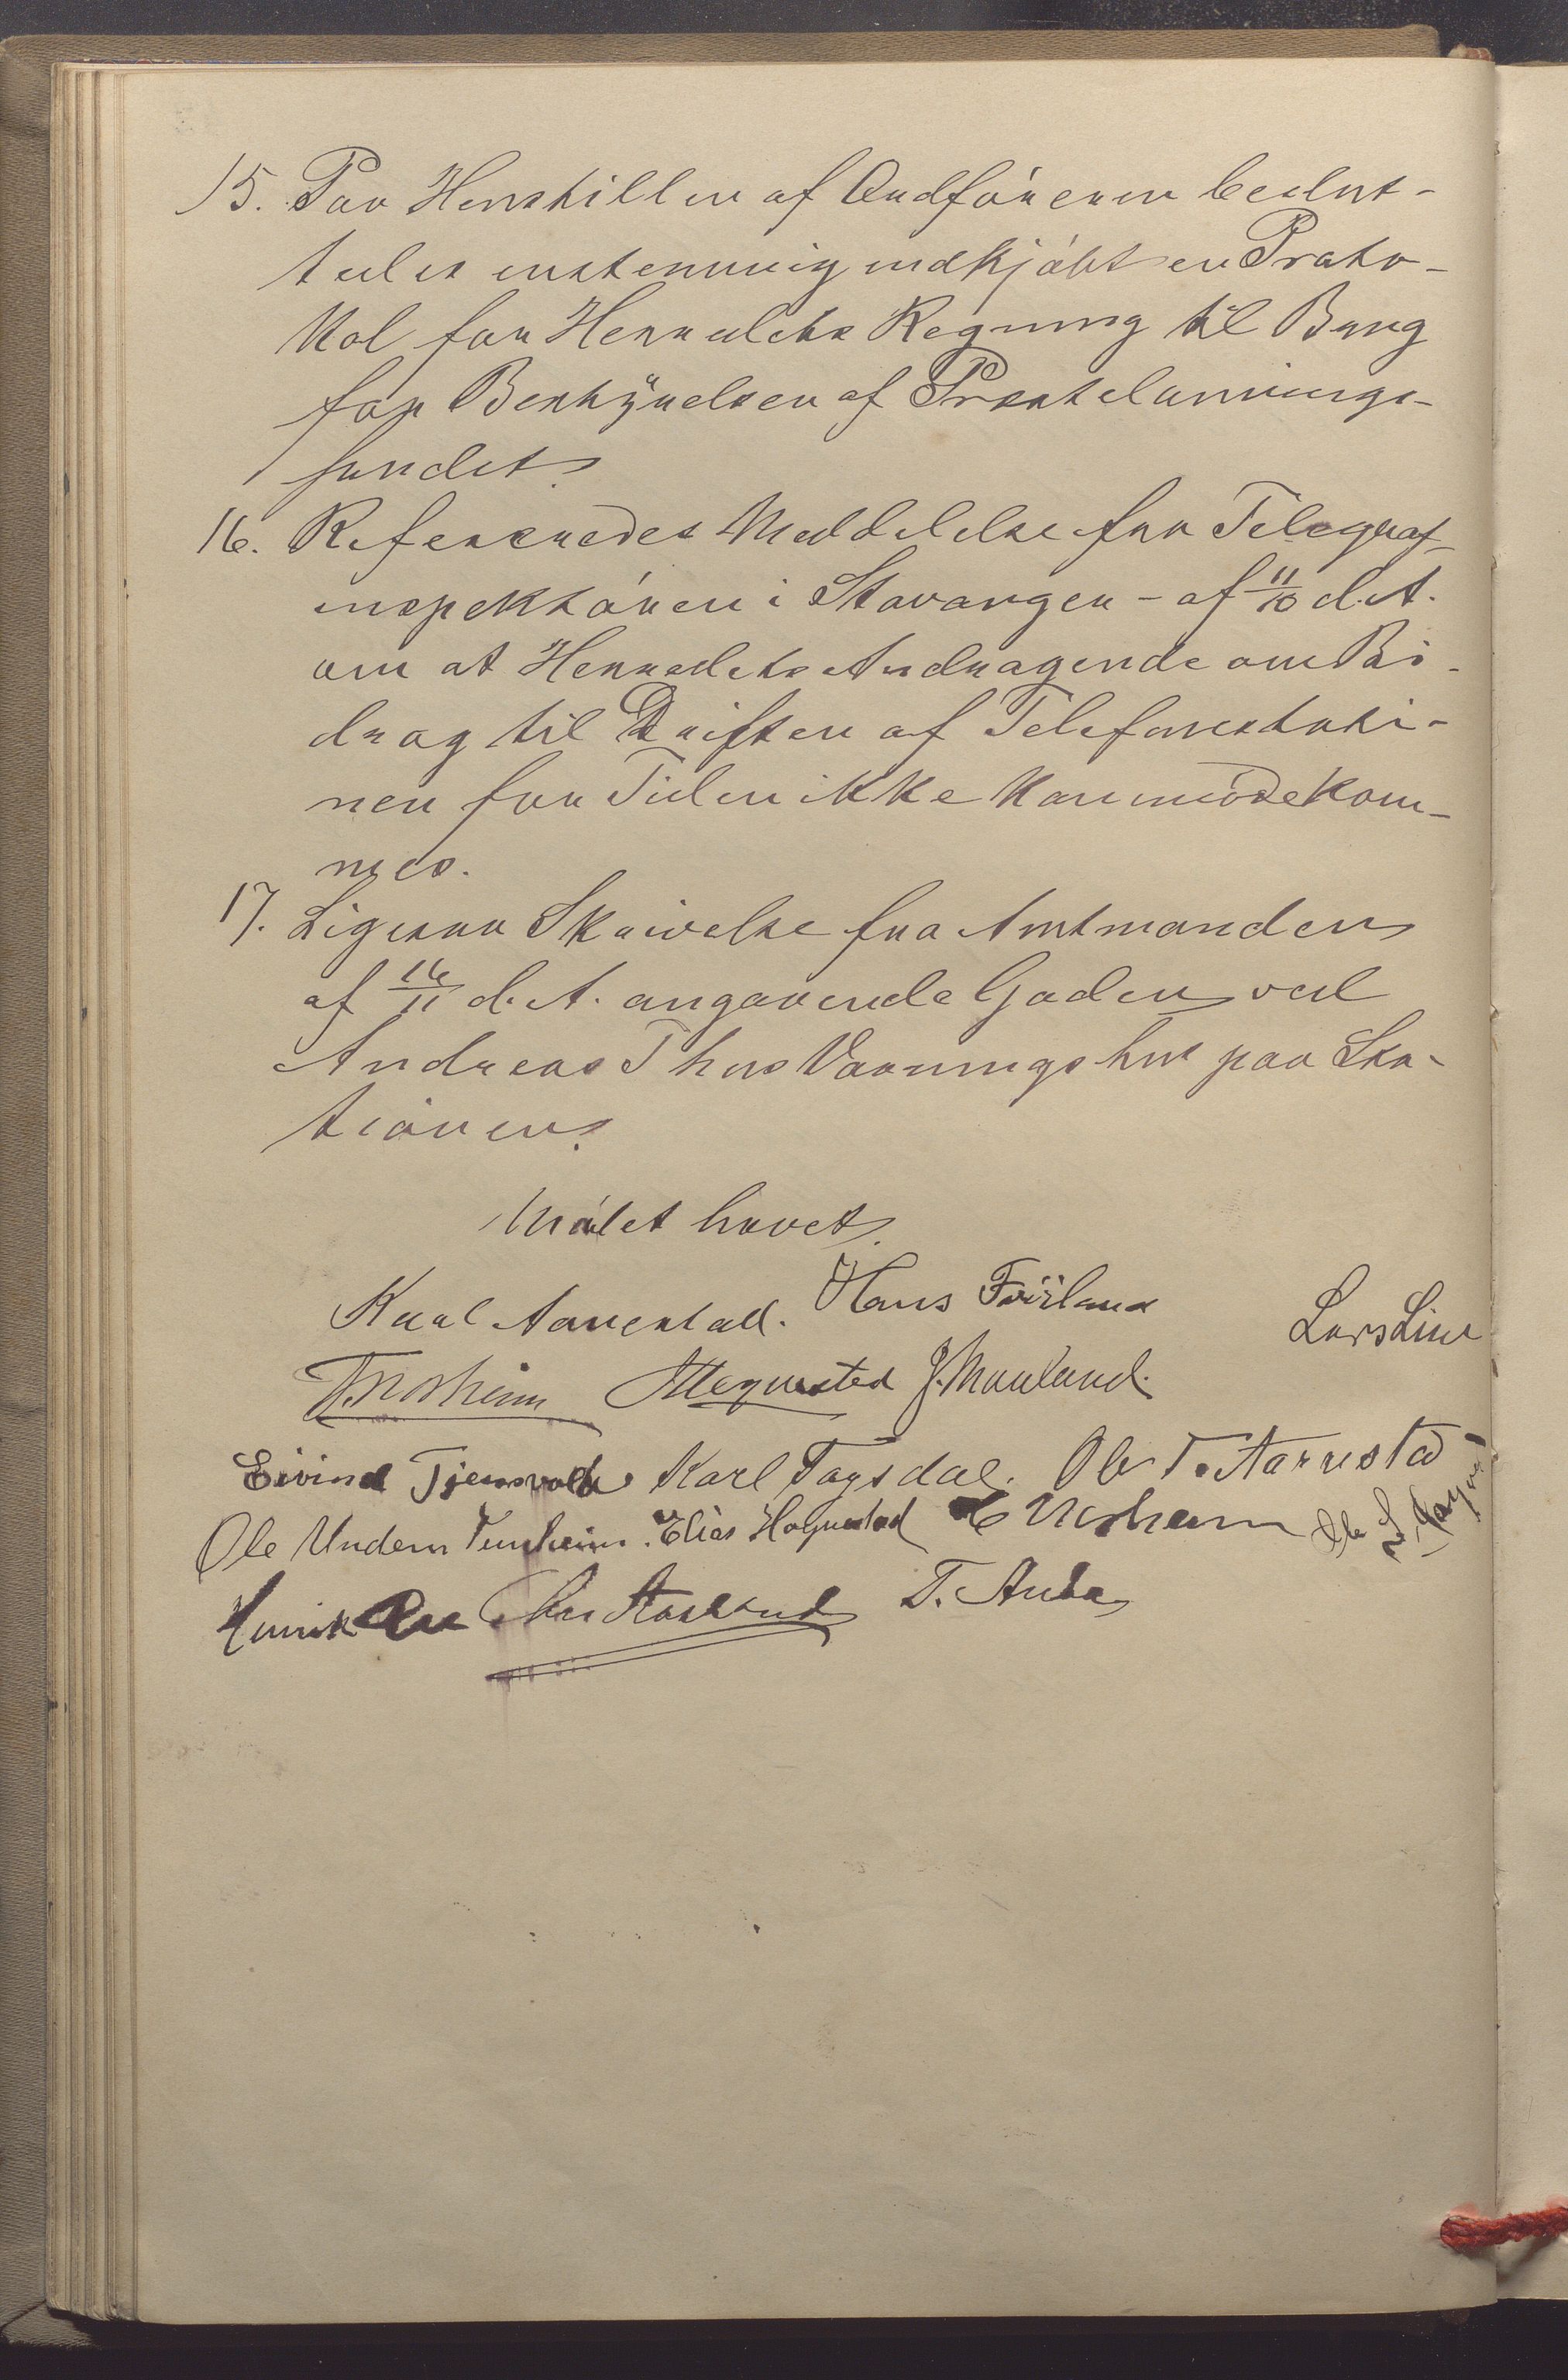 15. Paa Henstillen af Ordføreren beslut-
tedes enstemmig indkjøbt en Proto-
kol for Herredets Regning til Brug
for Bestyrelsen af Præstelønnings-
fondet.
16. Refereredes Meddelelse fra Telegraf-
inspektøren i Stavanger - af 11/10 d. A.
om at Herredets Andragende om Bi-
drag til Driften af Telefonstatio-
nen for Tiden ikke kan imødekom-
mes.
17. Ligesaa Skrivelse fra Amtmanden
af 16/11 d. A. angaaende Gaden ved
Andreas Thus Vaaningshus paa Sta-
tionen.
Mødet hævet.
Karl Aarrestad. Hans Förland Lars Line
J. Mauland.
Eivind Tjensvold Karl Tagsdal. Ole T. Aarrestad
Ole Undem Tunheim. Elias Hognestad
Henrik